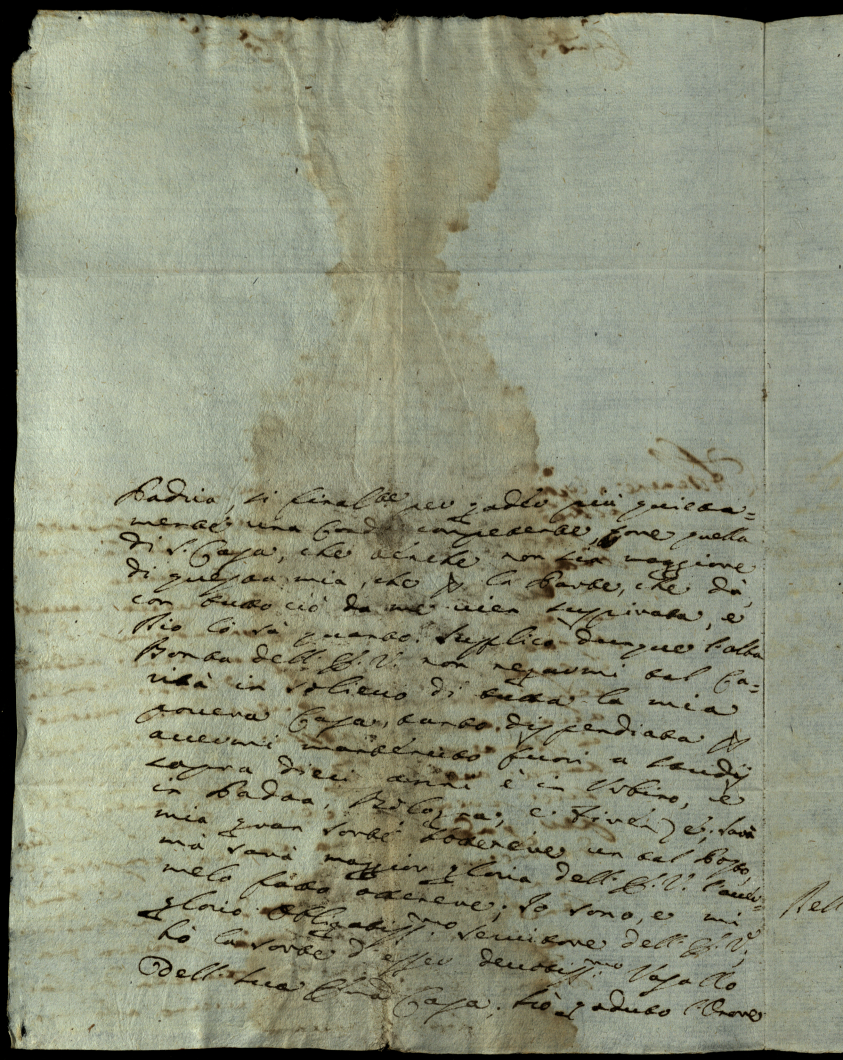 Padria, si finalm.te per goder più quieta=
mente una Cond.a competente, come quella
di S. Casa, che benche non sia maggiore
di questa mia, che p la Parte, che dà,
con tutto ciò da me vien suspirata, e
Dio lo sà quanto. Supplico dunque l'alta
Bontà dell' S. V. non negarmi tal Ca=
rità in solievo di tutta la mia
povera Casa, tanto dispendiata p
avermi mantenuto fuori a studij
sopra dieci anni è in Urbino, e
in Padoa, Bologna, e Firenze; sarà
mia gran sorte ottenere un tal Posto,
mà sarà maggior gloria dell' S. V. l'aver=
melo fatto ottenere; Io sono, e mi
glorio Obligatiss.mo servitore dell' S. V.
hò la sorte d'esser devotiss.mo Vasallo
dell' sua Casa. hò goduto l'Onore
Dell